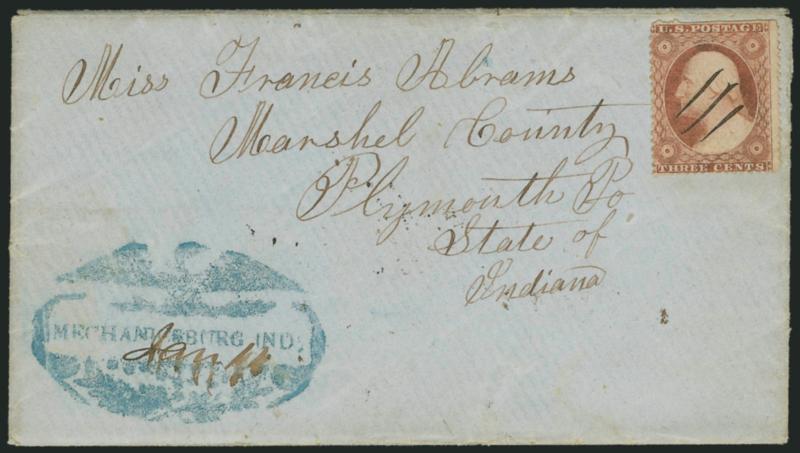 U.S. POSTAGE
THREE CENTS
Miss Francis Abrams
Marshel County
Plymouth Po
State of
Indiana
MECHANICSBURG IND.
Jan